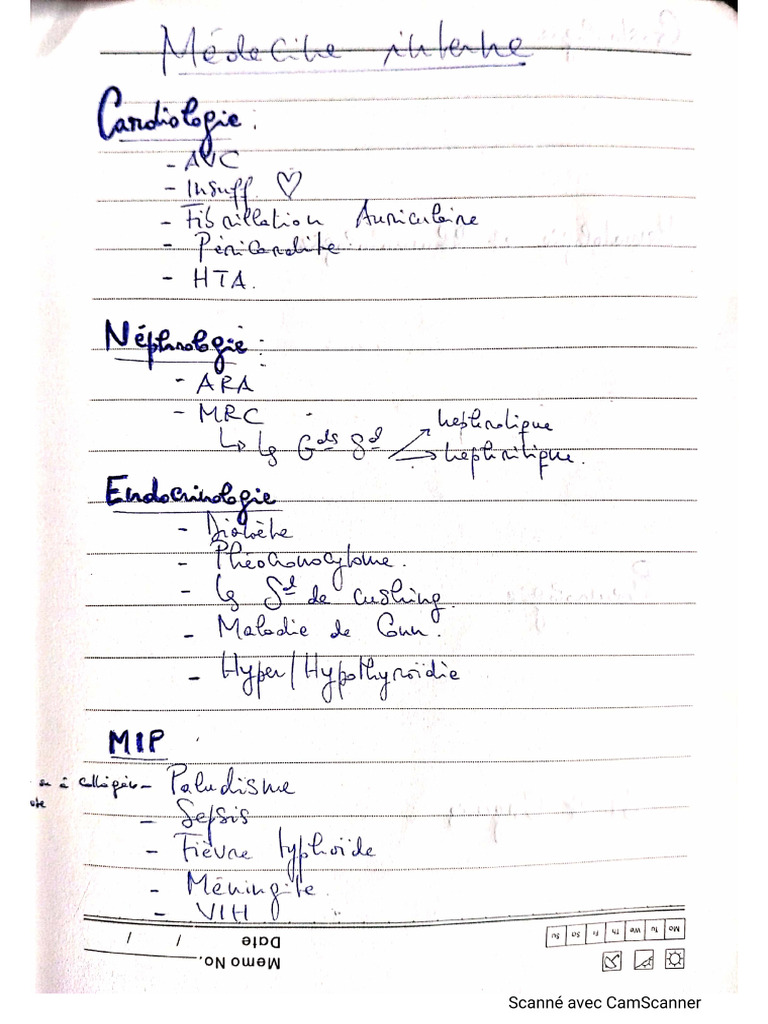 Médecine interne
Cardiologie :
- AVC
- Insuff ♡
- Fibrillation Auriculaire
- Péricardite
- HTA.
Néphrologie :
- ARA
- MRC
↳ Ls Gds Sd
nephrotique
nephritique.
Endocrinologie
- Diabète
- Phéochromocytome.
- Ls Sd de cushing.
- Maladie de Conn.
- Hyper/Hypothyroïdie
MIP
- Paludisme
- Sepsis
- Fièvre typhoïde
- Méningite.
- VIH
Mo Tu We Th Fr Sa Su
Memo No.
Date / /
Scanné avec CamScanner